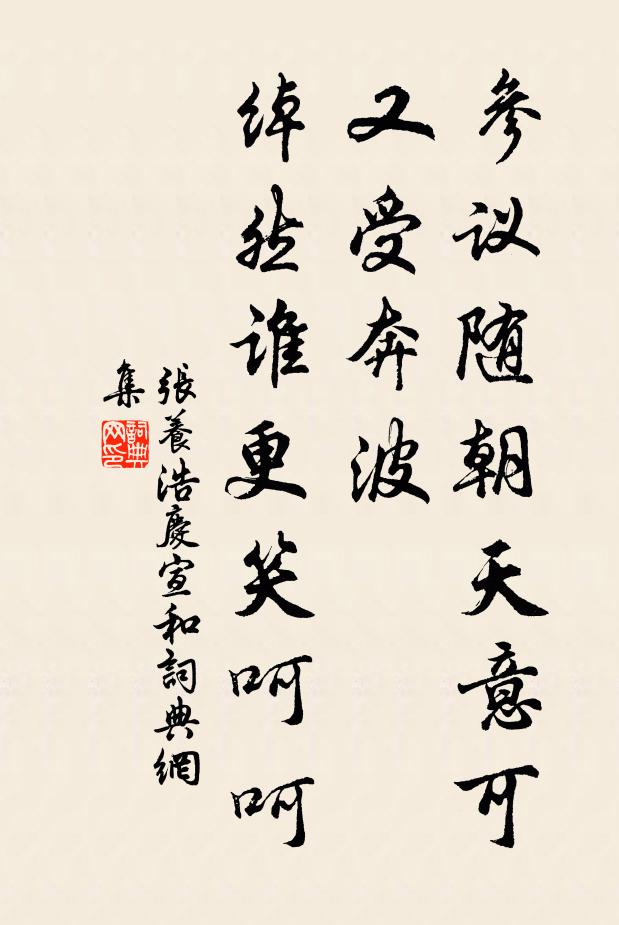 参议随朝天意可
又受奔波
绰然谁更笑呵呵
張養浩慶宣和詞典網
集
詞典
网印